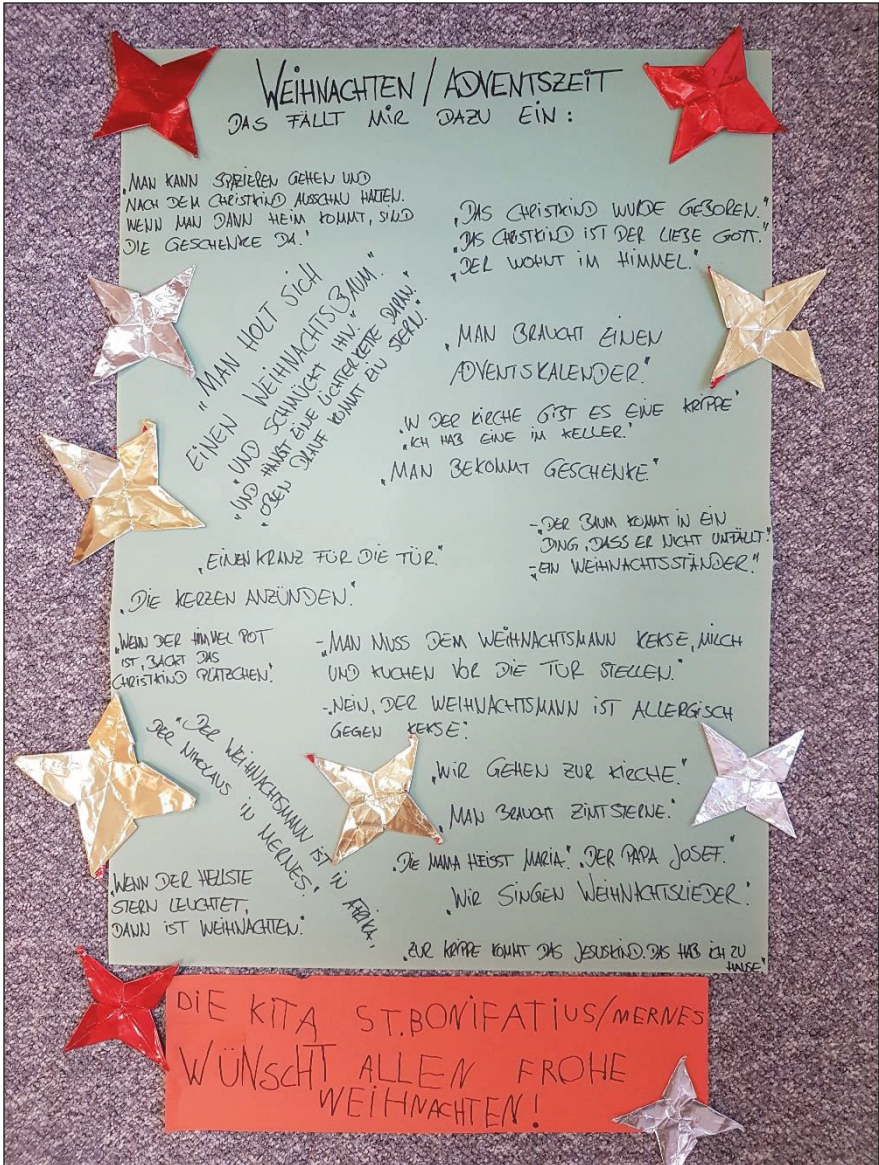 WEIHNACHTEN / ADVENTSZEIT
DAS FÄLLT MIR DAZU EIN:
„MAN KANN SPAZIEREN GEHEN UND
NACH DEM CHRISTKIND AUSSCHAU HALTEN.
WENN MAN DANN HEIM KOMMT, SIND
DIE GESCHENKE DA."
„DAS CHRISTKIND WURDE GEBOREN."
„DAS CHRISTKIND IST DER LIEBE GOTT."
„DER WOHNT IM HIMMEL."
„MAN HOLT SICH
EINEN WEIHNACHTSBAUM."
"UND SCHMÜCKT IHN."
"UND HÄNGT EINE LICHTERKETTE DARAN."
„OBEN DRAUF KOMMT EIN STERN."
„MAN BRAUCHT EINEN
ADVENTSKALENDER."
„IN DER KIRCHE GIBT ES EINE KRIPPE"
„ICH HAB EINE IM KELLER."
„MAN BEKOMMT GESCHENKE."
-„DER BAUM KOMMT IN EIN
DING, DASS ER NICHT UMFÄLLT."
-„EIN WEIHNACHTSSTÄNDER."
„EINEN KRANZ FÜR DIE TÜR."
„DIE KERZEN ANZÜNDEN."
„WENN DER HIMMEL ROT
IST, BACKT DAS
CHRISTKIND PLÄTZCHEN."
-„MAN MUSS DEM WEIHNACHTSMANN KEKSE, MILCH
UND KUCHEN VOR DIE TÜR STELLEN."
-„NEIN, DER WEIHNACHTSMANN IST ALLERGISCH
GEGEN KEKSE."
"DER WEIHNACHTSMANN IST IN AFRIKA,
DER NIKOLAUS IN MERNES."
„WIR GEHEN ZUR KIRCHE."
„MAN BRAUCHT ZIMTSTERNE."
„DIE MAMA HEISST MARIA." „DER PAPA JOSEF."
„WIR SINGEN WEIHNACHTSLIEDER."
„WENN DER HELLSTE
STERN LEUCHTET,
DANN IST WEIHNACHTEN."
„ZUR KRIPPE KOMMT DAS JESUSKIND. DAS HAB ICH ZU
HAUSE"
DIE KITA ST.BONIFATIUS/MERNES
WÜNSCHT ALLEN FROHE
WEIHNACHTEN!